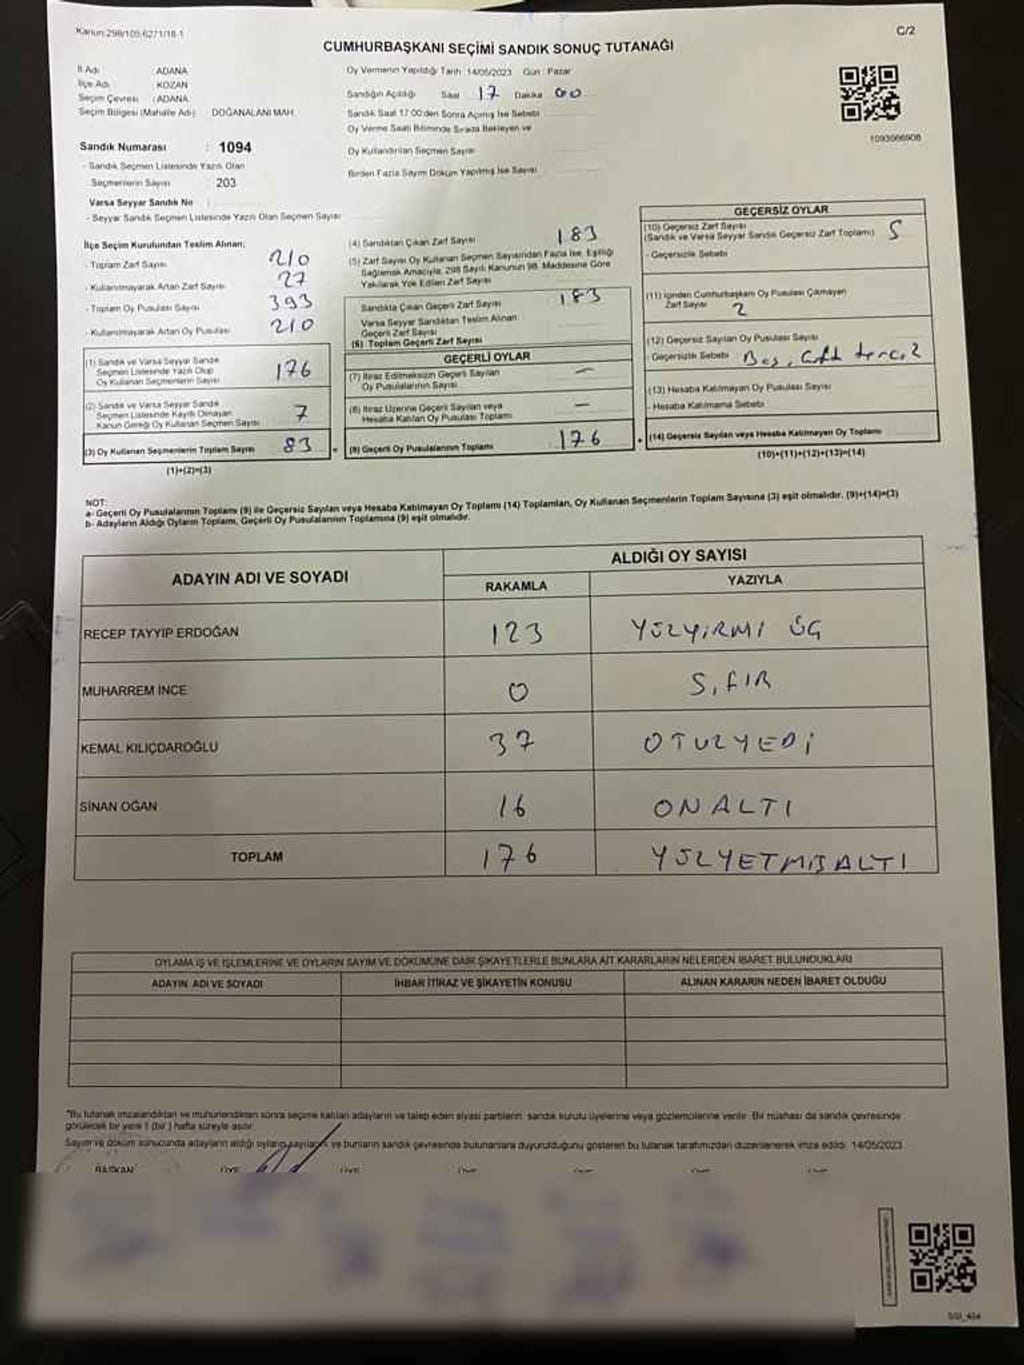 Kanun:298/105-6271/18-1
C/2
CUMHURBAŞKANI SEÇİMİ SANDIK SONUÇ TUTANAĞI
İl Adı : ADANA
İlçe Adı : KOZAN
Seçim Çevresi : ADANA
Seçim Bölgesi (Mahalle Adı) : DOĞANALANI MAH.
Sandık Numarası : 1094
- Sandık Seçmen Listesinde Yazılı Olan
Seçmenlerin Sayısı 203
Varsa Seyyar Sandık No :
- Seyyar Sandık Seçmen Listesinde Yazılı Olan Seçmen Sayısı
Oy Vermenin Yapıldığı Tarih : 14/05/2023 Gün : Pazar
Sandığın Açıldığı Saat 17 Dakika 00
Sandık Saat 17.00'den Sonra Açılmış İse Sebebi
Oy Verme Saati Bitiminde Sırada Bekleyen ve
Oy Kullandırılan Seçmen Sayısı
Birden Fazla Sayım Döküm Yapılmış İse Sayısı
1093566908
İlçe Seçim Kurulundan Teslim Alınan:
- Toplam Zarf Sayısı 210
- Kullanılmayarak Artan Zarf Sayısı 27
- Toplam Oy Pusulası Sayısı 393
- Kullanılmayarak Artan Oy Pusulası 210
(1) Sandık ve Varsa Seyyar Sandık
Seçmen Listesinde Yazılı Olup
Oy Kullanan Seçmenlerin Sayısı 176
(2) Sandık ve Varsa Seyyar Sandık
Seçmen Listesinde Kayıtlı Olmayan
Kanun Gereği Oy Kullanan Seçmen Sayısı 7
(3) Oy Kullanan Seçmenlerin Toplam Sayısı 83
(1)+(2)=(3)
(4) Sandıktan Çıkan Zarf Sayısı 183
(5) Zarf Sayısı Oy Kullanan Seçmen Sayısından Fazla İse, Eşitliği
Sağlamak Amacıyla, 298 Sayılı Kanunun 98. Maddesine Göre
Yakılarak Yok Edilen Zarf Sayısı
Sandıkta Çıkan Geçerli Zarf Sayısı 183
Varsa Seyyar Sandıktan Teslim Alınan
Geçerli Zarf Sayısı
(6) Toplam Geçerli Zarf Sayısı
GEÇERLİ OYLAR
(7) İtiraz Edilmeksizin Geçerli Sayılan
Oy Pusulalarının Sayısı —
(8) İtiraz Üzerine Geçerli Sayılan veya
Hesaba Katılan Oy Pusulası Toplamı —
(9) Geçerli Oy Pusulalarının Toplamı 176
GEÇERSİZ OYLAR
(10) Geçersiz Zarf Sayısı
(Sandık ve Varsa Seyyar Sandık Geçersiz Zarf Toplamı) 5
- Geçersizlik Sebebi
(11) İçinden Cumhurbaşkanı Oy Pusulası Çıkmayan
Zarf Sayısı 2
(12) Geçersiz Sayılan Oy Pusulası Sayısı
- Geçersizlik Sebebi Boş, Çift
(13) Hesaba Katılmayan Oy Pusulası Sayısı
- Hesaba Katılmama Sebebi
(14) Geçersiz Sayılan veya Hesaba Katılmayan Oy Toplamı
(10)+(11)+(12)+(13)=(14)
NOT:
a- Geçerli Oy Pusulalarının Toplamı (9) ile Geçersiz Sayılan veya Hesaba Katılmayan Oy Toplamı (14) Toplamları, Oy Kullanan Seçmenlerin Toplam Sayısına (3) eşit olmalıdır. (9)+(14)=(3)
b- Adayların Aldığı Oyların Toplamı, Geçerli Oy Pusulalarının Toplamına (9) eşit olmalıdır.
ADAYIN ADI VE SOYADI
ALDIĞI OY SAYISI
RAKAMLA YAZIYLA
RECEP TAYYİP ERDOĞAN 123 YÜZYİRMİ ÜÇ
MUHARREM İNCE 0 SIFIR
KEMAL KILIÇDAROĞLU 37 OTUZYEDİ
SİNAN OĞAN 16 ONALTI
TOPLAM 176 YÜZYETMİŞALTI
OYLAMA İŞ VE İŞLEMLERİNE VE OYLARIN SAYIM VE DÖKÜMÜNE DAİR ŞİKAYETLERLE BUNLARA AİT KARARLARIN NELERDEN İBARET BULUNDUKLARI
ADAYIN ADI VE SOYADI İHBAR İTİRAZ VE ŞİKAYETİN KONUSU ALINAN KARARIN NEDEN İBARET OLDUĞU
"Bu tutanak imzalandıktan ve mühürlendikten sonra seçime katılan adayların ve talep eden siyasi partilerin, sandık kurulu üyelerine veya gözlemcilerine verilir. Bir nüshası da sandık çevresinde
görülecek bir yere 1 (bir) hafta süreyle asılır.
Sayım ve döküm sonucunda adayların aldığı oyların sayılarını ve bunların sandık çevresinde bulunanlara duyurulduğunu gösteren bu tutanak tarafımızdan düzenlenerek imza edildi. 14/05/2023
BAŞKAN ÜYE ÜYE ÜYE ÜYE ÜYE ÜYE